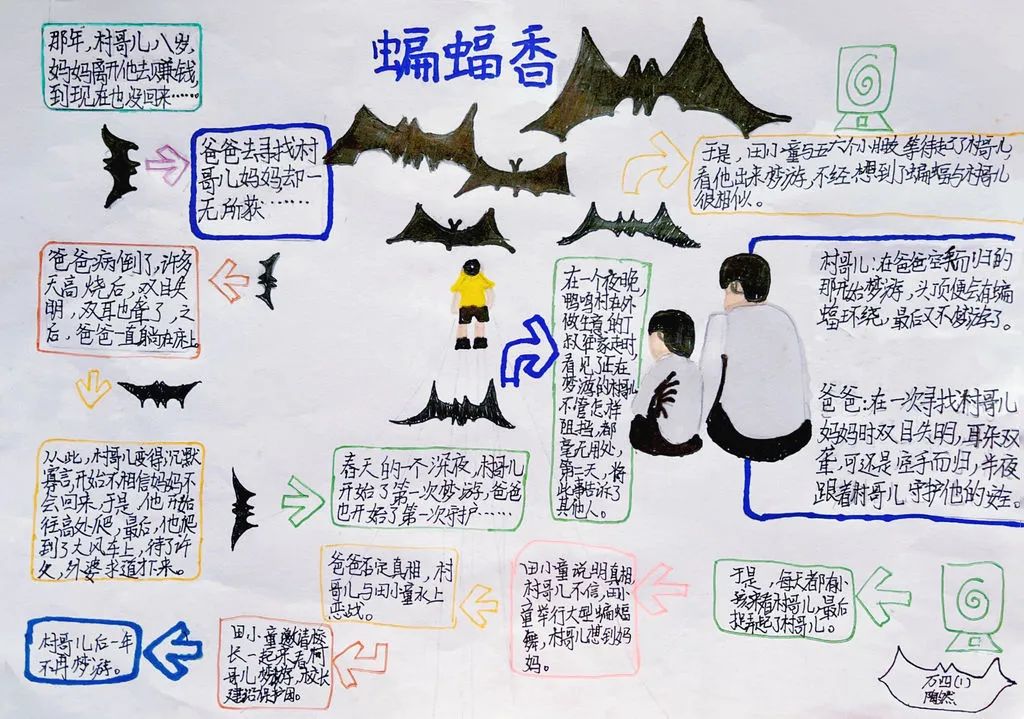 蝙蝠香
那年,村哥儿八岁,
妈妈离开他去赚钱,
到现在也没回来……
爸爸去寻找村
哥儿妈妈却一
无所获……
爸爸病倒了,许多
天高烧后,双目失
明,双耳也聋了,之
后,爸爸一直躺在床上。
从此,村哥儿变得沉默
寡言,开始不相信妈妈不
会回来,于是,他开始
往高处爬,最后,他爬
到了大风车上,待了许
久,外婆求道扑来。
春天的一个深夜,村哥儿
开始了第一次梦游,爸爸
也开始了第一次守护……
在一个夜晚,
鸭鸣村在外
做生意的丁
叔往家走时,
看见了正在
梦游的村哥儿
不管怎样
阻挡,都
毫无用处,
第二天,将
此事告诉了
其他人。
于是,田小童与五六个小朋友等待起了村哥儿,
看他出来梦游,不经想到了蝙蝠与村哥儿
很相似。
村哥儿:在爸爸空手而归的
那开始梦游,头顶便会有蝙
蝠环绕,最后又不梦游了。
爸爸:在一次寻找村哥儿
妈妈时双目失明,耳朵双
聋,可还是空手而归,半夜
跟着村哥儿守护他的安全。
于是,每天都有小
孩来看村哥儿,最后
捉弄起了村哥儿。
田小童说明真相,
村哥儿不信,田小
童举行大型蝙蝠
舞,村哥儿想到妈
妈。
爸爸否定真相,村
哥儿与田小童水上
恶战。
田小童邀请校
长一起来看村
哥儿梦游,校长
建招保护团。
村哥儿后一年
不再梦游。
万四(1)
陶然